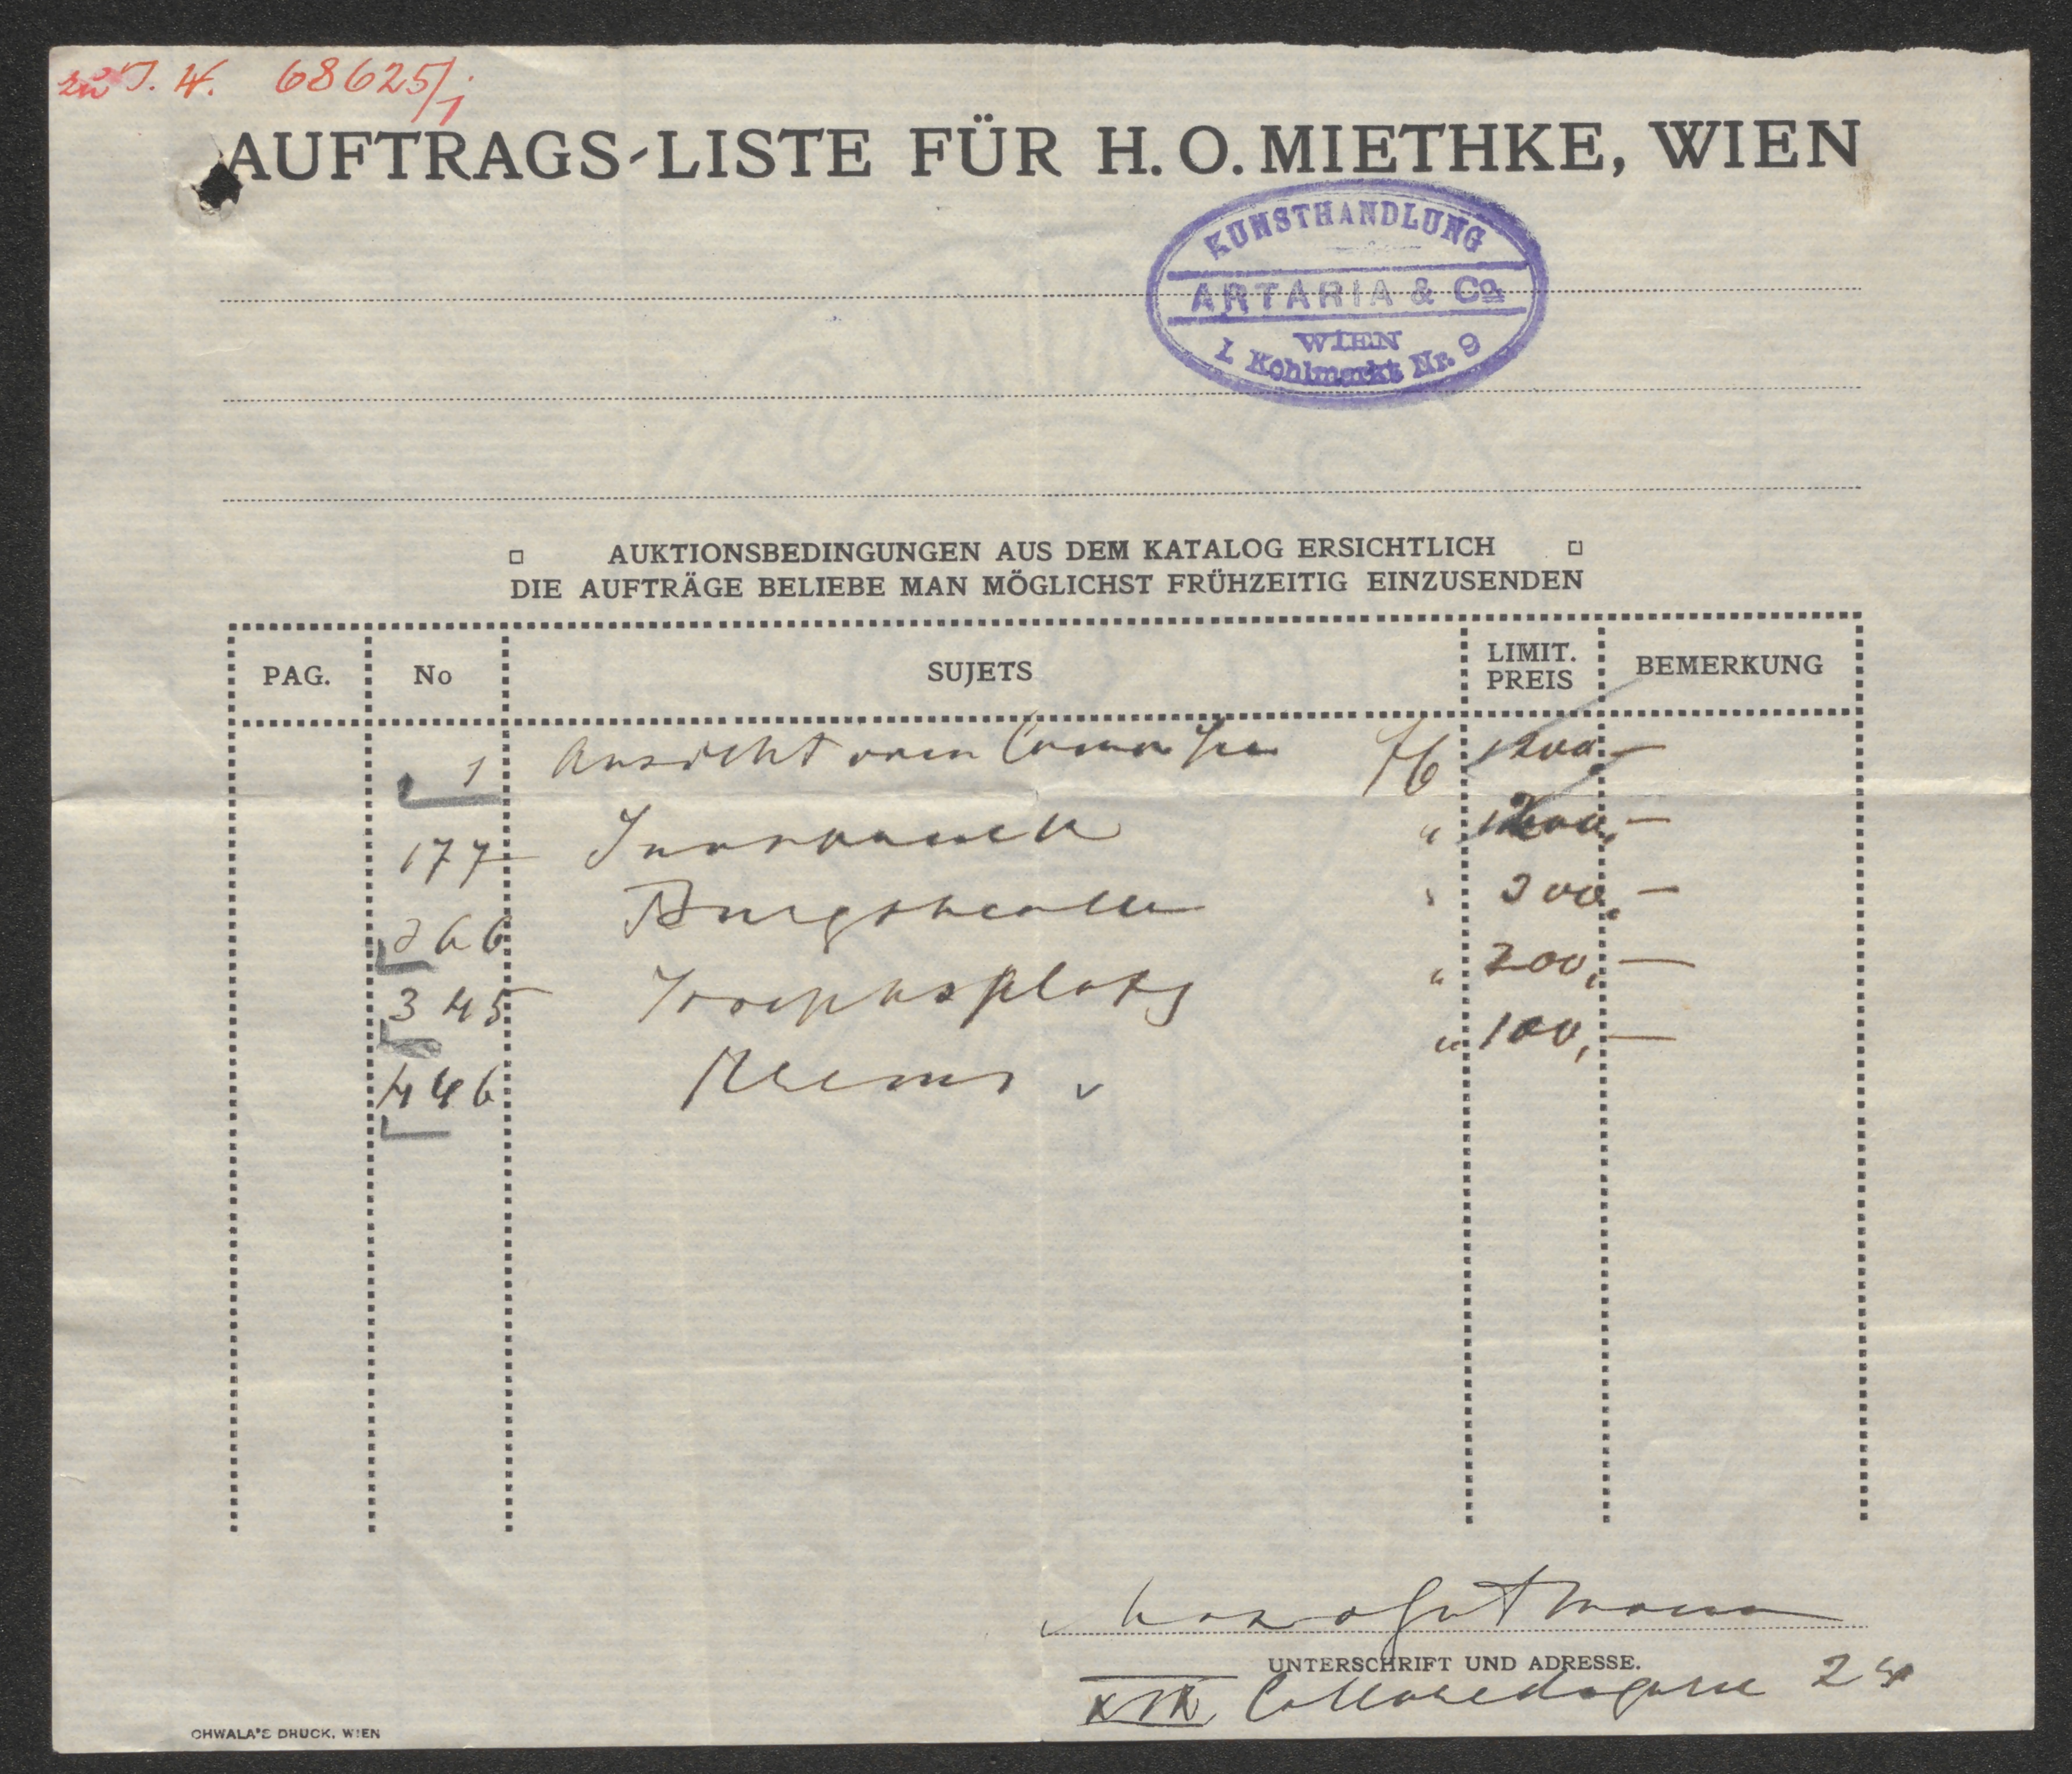 zu J. W. 68625/1
AUFTRAGS-LISTE FÜR H. O. MIETHKE, WIEN
KUNSTHANDLUNG
ARTARIA & Co
WIEN
I. Kohlmarkt Nr. 9
AUKTIONSBEDINGUNGEN AUS DEM KATALOG ERSICHTLICH
DIE AUFTRÄGE BELIEBE MAN MÖGLICHST FRÜHZEITIG EINZUSENDEN
PAG. No SUJETS LIMIT. PREIS BEMERKUNG
1 Ansicht vom 1200.—
177 Innsbruck " —
266 " 300,—
345 Josephsplatz " 200,—
446 Krems " 100,—
Gutmann
UNTERSCHRIFT UND ADRESSE.
Colloredogasse 24
CHWALA'S DRUCK, WIEN